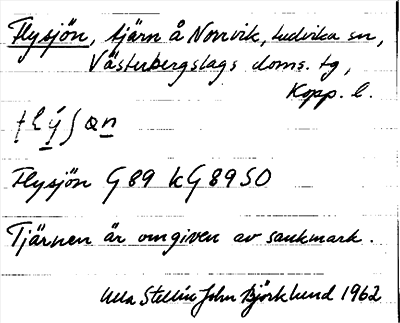 Flysjön, tjärn å Norrvik, Ludvika sn,
Västerbergslags doms. tg,
Kopp. l.
Flysjön G 89 k G 89 SO
Tjärnen är omgiven av sankmark.
Ulla Stellin John Björklund 1962